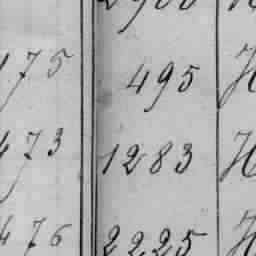 475 495 H
473 1283 H
476 2225 H